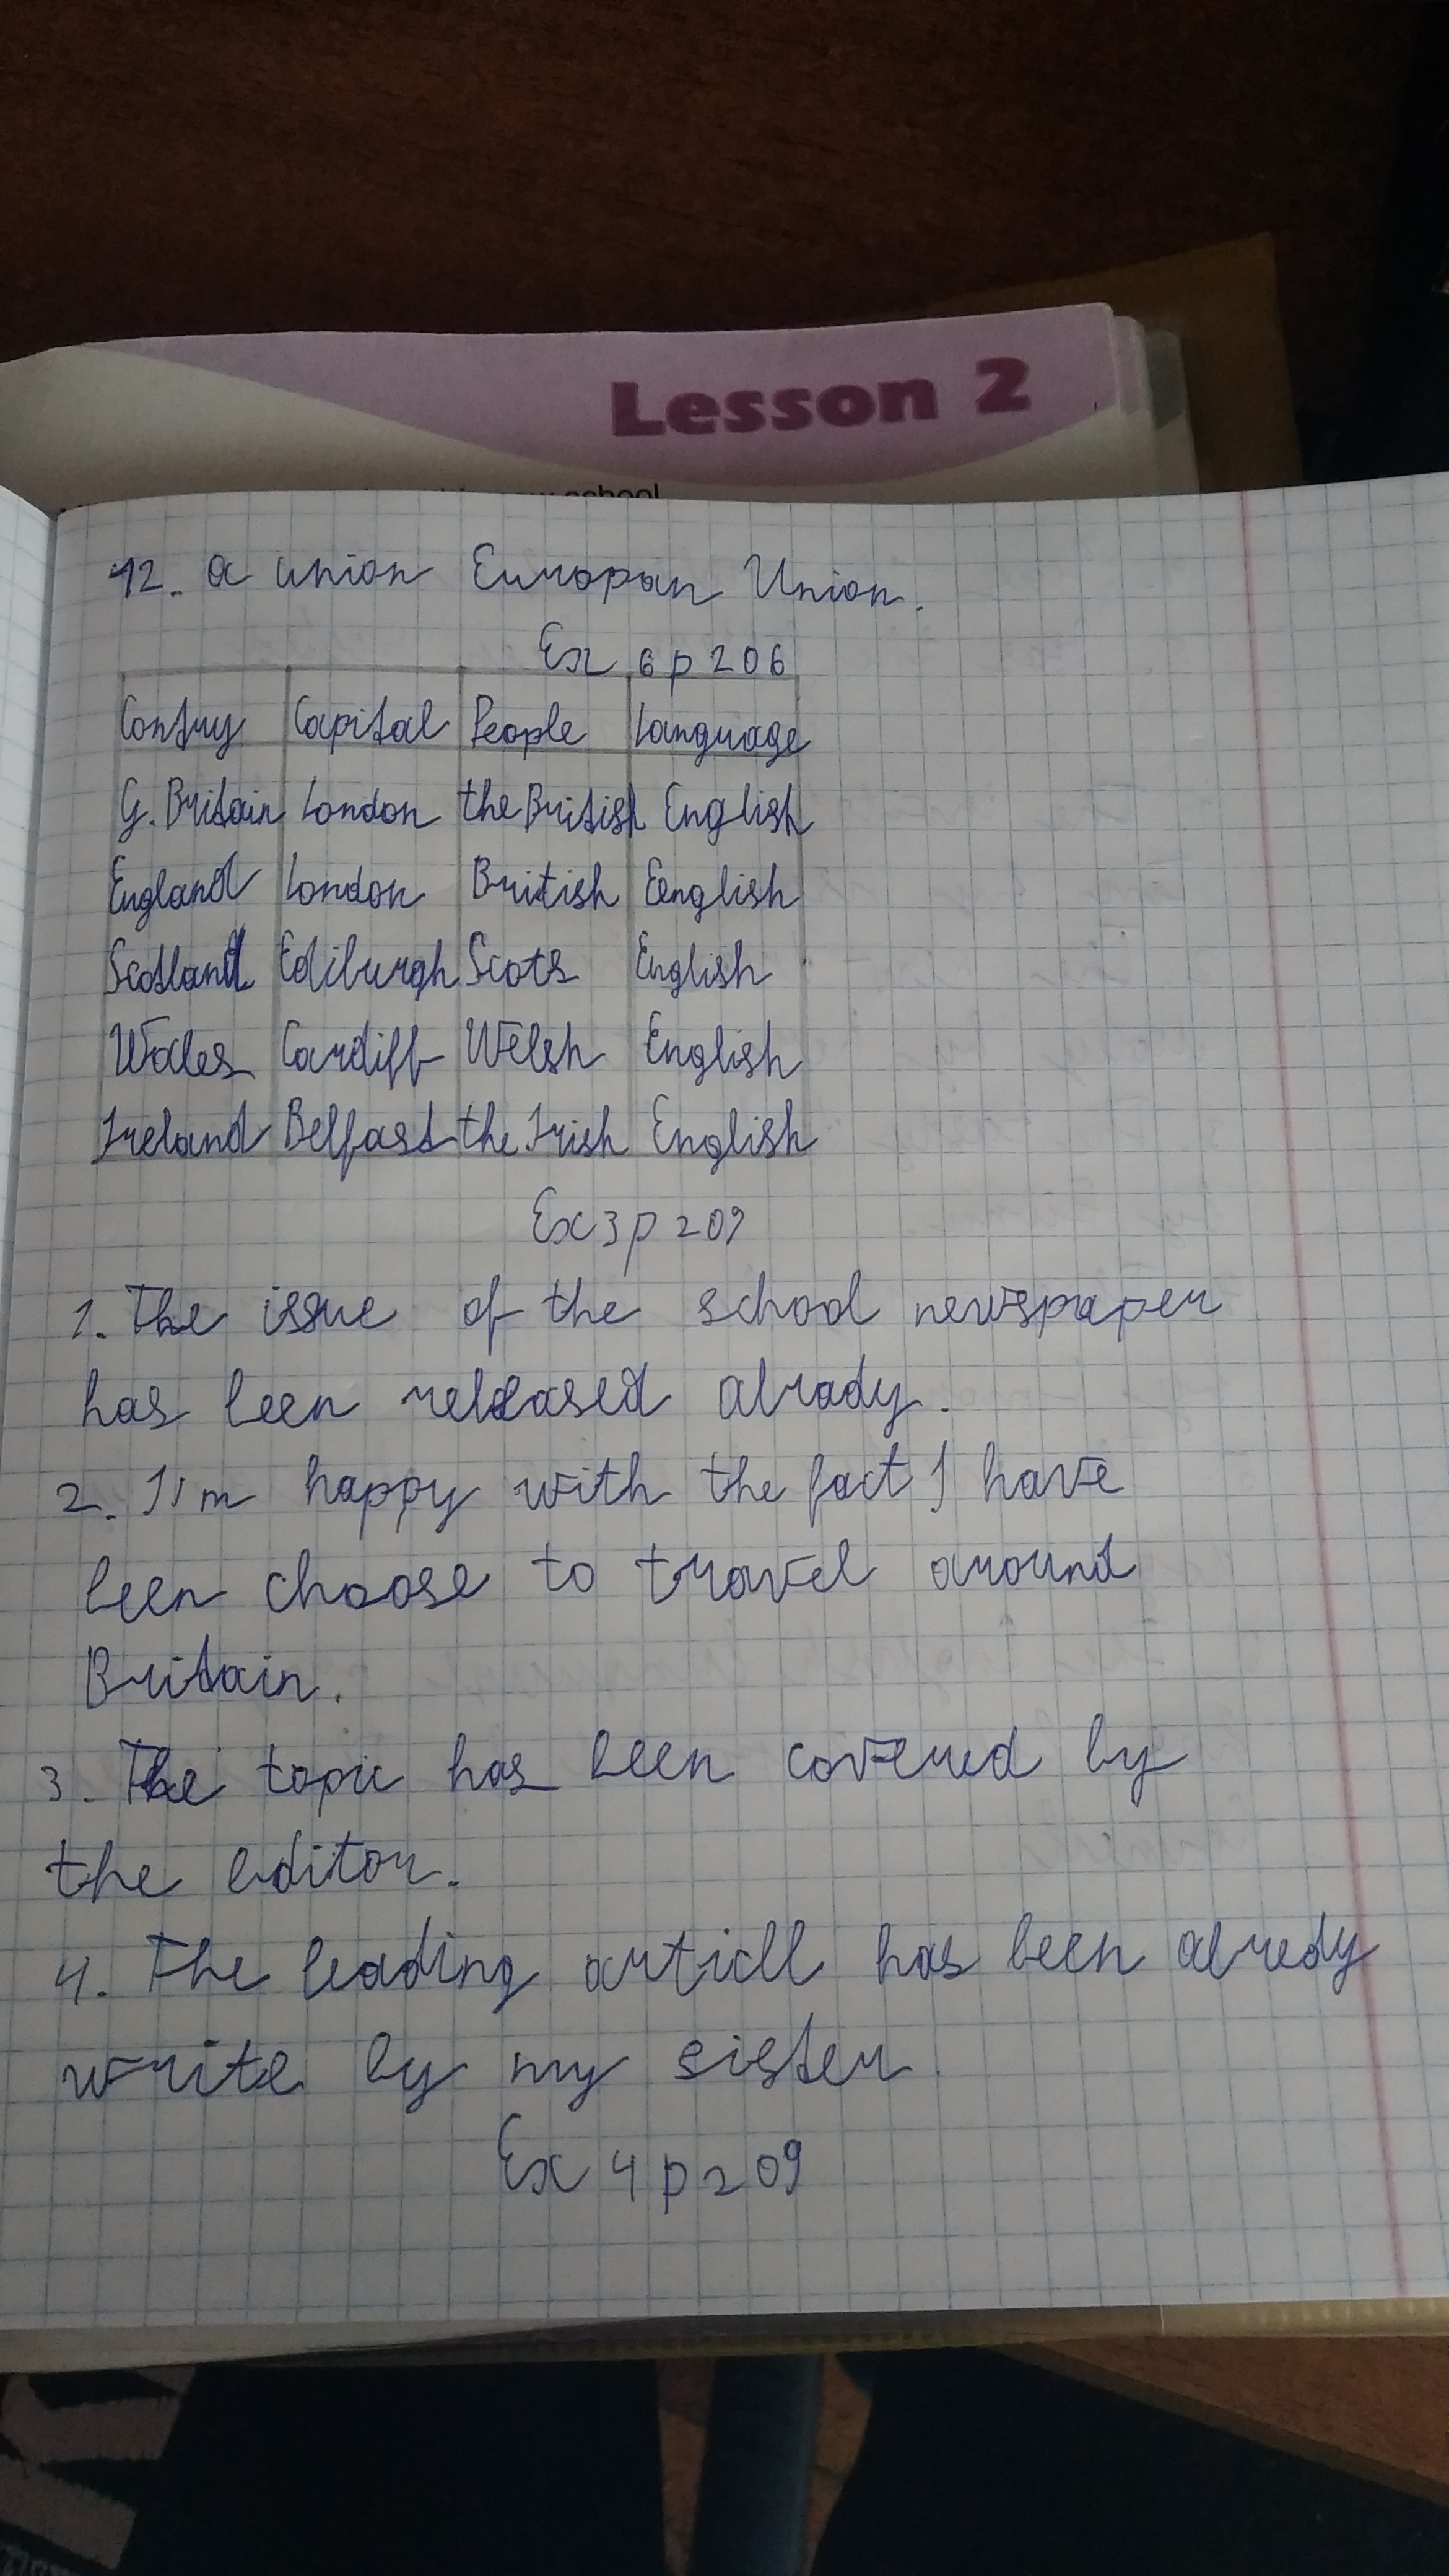 Lesson 2
school
12. a union Europan Union.
Ex 6 p 206
Contry Capital People Language
G. Britain London the British English
England London British English
Scotland Ediburgh Scots English
Wales Cardiff Welsh English
Ireland Belfast the Irish English
Ex 3 p 209
1. The issue of the school newspaper
has been released alrady.
2. I'm happy with the fact I have
been choose to travel around
Britain.
3. The topic has been covered by
the editor.
4. The leading articll has been alredy
write by my sister.
Ex 4 p 209